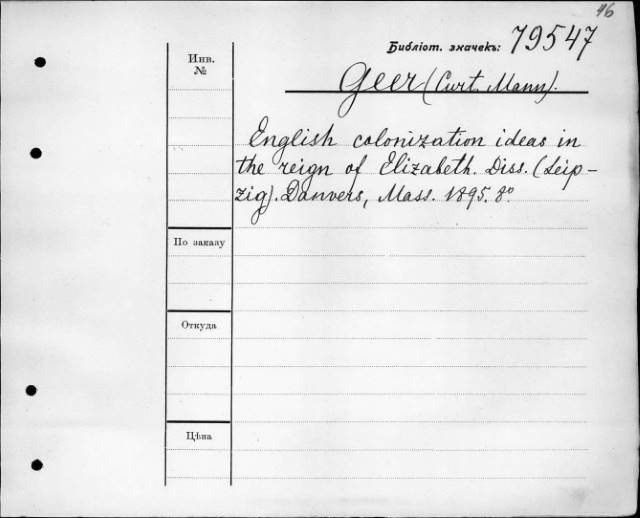 46
Библіот. значекъ: 79547
Инв.
№
Geer (Curt. Mann).
English colonization ideas in
the reign of Elizabeth. Diss. (Leip-
zig). Danvers, Mass. 1895. 8°.
По заказу
Откуда
Цѣна